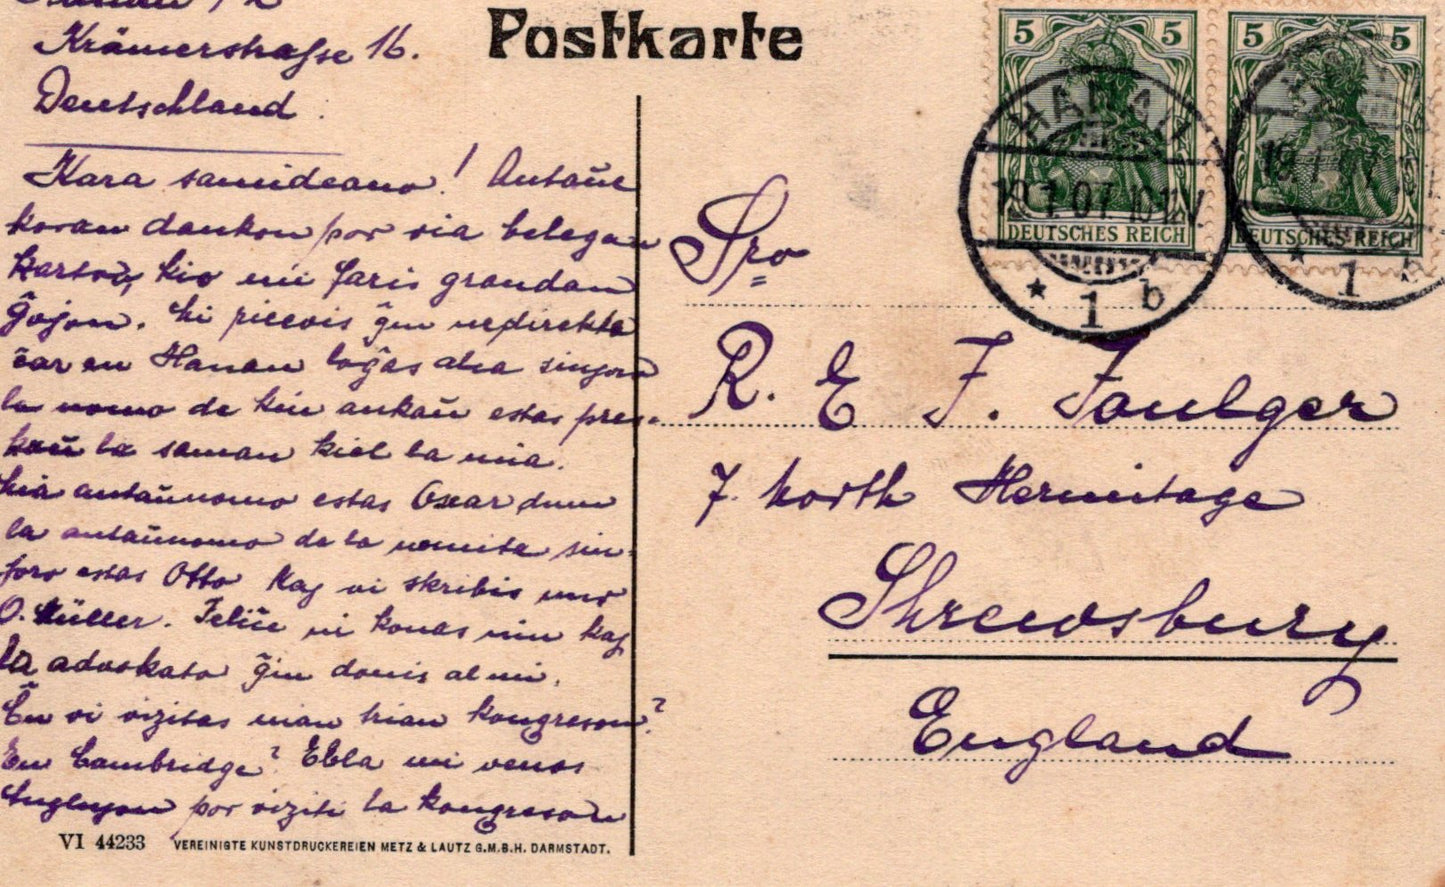 Postkarte
Krämerstrasse 16.
Deutschland.
Kara samideano! Antaŭe
koran dankon por via belegan
karton, kio mi faris grandan
ĝojon. Mi ricevis ĝin nerdirekte
ĉar en Hanau loĝas alia sinjoro
la nomo de kiu ankaŭ estas pres-
kaŭ la saman kiel la mia.
Mia antaŭnomo estas Oscar dum
la antaŭnomo de la nomita sin-
joro estas Otto kaj vi skribis nur
O. Müller. Feliĉe ni konas nin kaj
la advokato ĝin donis al mi.
Ĉu vi vizitas nian trian kongreson?
En Cambridge? Ebla mi venos
Anglujon por viziti la kongreson
VI 44233 VEREINIGTE KUNSTDRUCKEREIEN METZ & LAUTZ G.M.B.H. DARMSTADT.
5 5 5 5
DEUTSCHES REICH DEUTSCHES REICH
HANAU
19.1.07.
* 1 b
19.1.07.
* 1
Sro
R. E. F. Foulger
7. North Hermitage
Shrewsbury
England